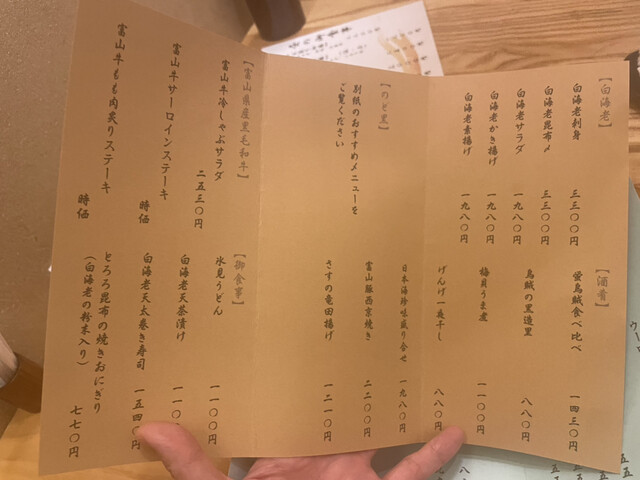 【白海老】
白海老刺身 三三〇〇円
白海老昆布〆 三三〇〇円
白海老サラダ 一九八〇円
白海老かき揚げ 一九八〇円
白海老素揚げ 一九八〇円
【酒肴】
蛍烏賊食べ比べ 一四三〇円
烏賊の黒造里 八八〇円
梅貝うま煮 一一〇〇円
げんげ一夜干し 八八〇円
日本海珍味盛り合せ 一九八〇円
富山豚西京焼き 二二〇〇円
さすの竜田揚げ 一二一〇円
【のど黒】
別紙のおすすめメニューを
ご覧ください
【富山県産黒毛和牛】
富山牛冷しゃぶサラダ 二五三〇円
富山牛サーロインステーキ 時価
富山牛もも肉炙りステーキ 時価
【御食事】
氷見うどん 一一〇〇円
白海老天茶漬け 一一〇
白海老天太巻き寿司 一五四〇円
とろろ昆布の焼きおにぎり
(白海老の粉末入り) 七七〇円